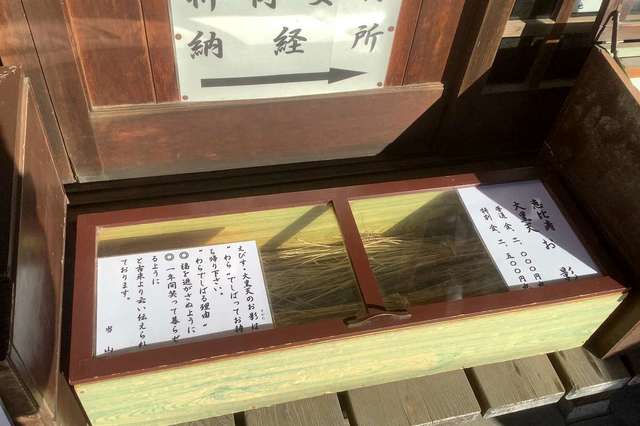 納経所
恵比寿
大黒天 お影
金、二、〇〇〇円
特別 金、二、五〇〇円
えびす・大黒天のお影は
"わら"でしばってお持
ち帰り下さい。
"わらでしばる理由"
◎福を逃がさぬように
◎一年間笑って暮らせ
るように
と古来より云い伝えられ
ております。
当山